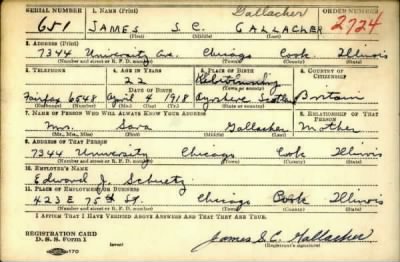 Gallacher
SERIAL NUMBER 1. NAME (Print) ORDER NUMBER
651 JAMES S. C. GALLACHER 2724
(First) (Middle) (Last)
2. ADDRESS (Print)
7344 University Av. Chicago Cook Illinois
(Number and street or R. F. D. number) (Town) (County) (State)
3. TELEPHONE 4. AGE IN YEARS 5. PLACE OF BIRTH 6. COUNTRY OF CITIZENSHIP
22
DATE OF BIRTH (Town or county)
Fairfax 6548 April 6 1918 Ayrshire Scotland Britain
(Exchange) (Number) (Mo.) (Day) (Yr.) (State or country)
7. NAME OF PERSON WHO WILL ALWAYS KNOW YOUR ADDRESS 8. RELATIONSHIP OF THAT PERSON
Mrs. Sara Gallacher Mother
(Mr., Mrs., Miss) (First) (Middle) (Last)
9. ADDRESS OF THAT PERSON
7344 University Chicago Cook Illinois
(Number and street or R. F. D. number) (Town) (County) (State)
10. EMPLOYER'S NAME
Edward J. Schuetz
11. PLACE OF EMPLOYMENT OR BUSINESS
423 E 75th St. Chicago Cook Illinois
(Number and street or R. F. D. number) (Town) (County) (State)
I AFFIRM THAT I HAVE VERIFIED ABOVE ANSWERS AND THAT THEY ARE TRUE.
REGISTRATION CARD
D. S. S. Form 1 James S.C. Gallacher
(Registrant's signature)